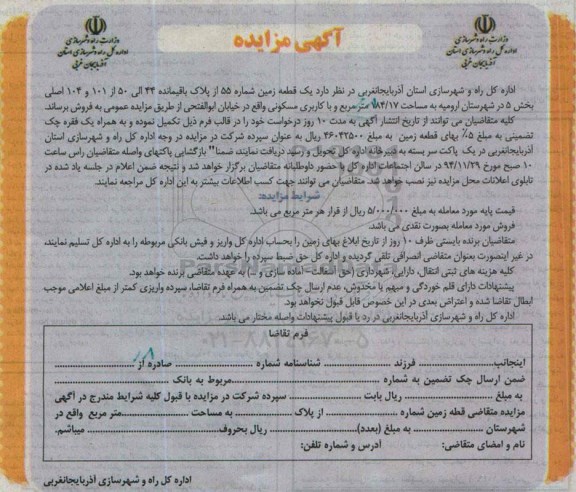 وزارت راه و شهرسازی
اداره کل راه و شهرسازی استان
آذربایجان غربی
آگهی مزایده
وزارت راه و شهرسازی
اداره کل راه و شهرسازی استان
آذربایجان غربی
اداره کل راه و شهرسازی استان آذربایجانغربی در نظر دارد یک قطعه زمین شماره ۵۵ از پلاک باقیمانده ۴۴ الی ۵۰ از ۱۰۱ و ۱۰۴ اصلی
بخش ۵ در شهرستان ارومیه به مساحت ۱۸۴/۱۷ متر مربع و با کاربری مسکونی واقع در خیابان ابوالفتحی از طریق مزایده عمومی به فروش برساند.
کلیه متقاضیان می توانند از تاریخ انتشار آگهی به مدت ۱۰ روز درخواست خود را در قالب فرم ذیل تکمیل نموده و به همراه یک فقره چک
تضمینی به مبلغ ۵٪ بهای قطعه زمین به مبلغ ۴۶۰۴۲۵۰۰ ریال به عنوان سپرده شرکت در مزایده در وجه اداره کل راه و شهرسازی استان
آذربایجانغربی در یک پاکت سر بسته به دبیرخانه اداره کل تحویل و رسید دریافت نمایند، ضمنا" بازگشایی پاکتهای واصله متقاضیان راس ساعت
۱۰ صبح مورخ ۹۴/۱۱/۲۹ در سالن اجتماعات اداره کل با حضور داوطلبانه متقاضیان برگزار خواهد شد و نتیجه ضمن اعلام در جلسه یاد شده در
تابلوی اعلانات محل مزایده نیز نصب خواهد شد. متقاضیان می توانند جهت کسب اطلاعات بیشتر به این اداره کل مراجعه نمایند.
شرایط مزایده:
قیمت پایه مورد معامله به مبلغ ۵/۰۰۰/۰۰۰ ریال از قرار هر متر مربع می باشد.
فروش مورد معامله بصورت نقدی می باشد.
متقاضیان برنده بایستی ظرف ۱۰ روز از تاریخ ابلاغ بهای زمین را بحساب اداره کل واریز و فیش بانکی مربوطه را به اداره کل تسلیم نمایند،
در غیر اینصورت بعنوان متقاضی انصرافی تلقی گردیده و اداره کل حق ضبط سپرده را خواهد داشت.
کلیه هزینه های ثبتی انتقال، دارایی، شهرداری (حق انشعالت - آماده سازی و ...) به عهده متقاضی برنده خواهد بود.
پیشنهادات دارای قلم خوردگی و مبهم یا مخدوش، عدم ارسال چک تضمین به همراه فرم تقاضا، سپرده واریزی کمتر از مبلغ اعلامی موجب
ابطال تقاضا شده و اعتراض بعدی در این خصوص قابل قبول نخواهد بود.
اداره کل راه و شهرسازی آذربایجانغربی در رد یا قبول پیشنهادات واصله مختار می باشد.
۰۲۱-۸۸۳۴۹۶۷۰-۵
فرم تقاضا
اینجانب........................ فرزند ........................ شناسنامه شماره ........................ صادره از ........................
ضمن ارسال چک تضمین به شماره ........................مربوط به بانک ........................
به مبلغ ........................ ریال بابت ........................ سپرده شرکت در مزایده با قبول کلیه شرایط مندرج در آگهی
مزایده متقاضی قطه زمین شماره ........................ از پلاک ........................ به مساحت ........................متر مربع واقع در
شهرستان ........................ به مبلغ (بعدد)........................ ریال بحروف........................ میباشم.
نام و امضای متقاضی: آدرس و شماره تلفن:
اداره کل راه و شهرسازی آذربایجانغربی